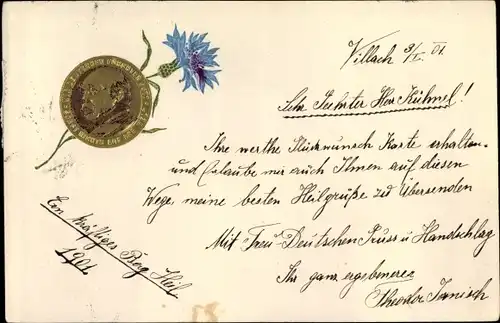 Villach 3/I. 01.
Sehr Geehrter Herr Kühnel!
Ihre werthe Glückwunsch Karte erhalten
und Erlaube mir auch Ihnen auf diesen
Wege, meine besten Heilgrüße zu Übersenden
Mit Treu-Deutschen Gruss u Handschlag
Ihr ganz ergebener
Theodor Janisch
Ein kräftiges Berg Heil
1901